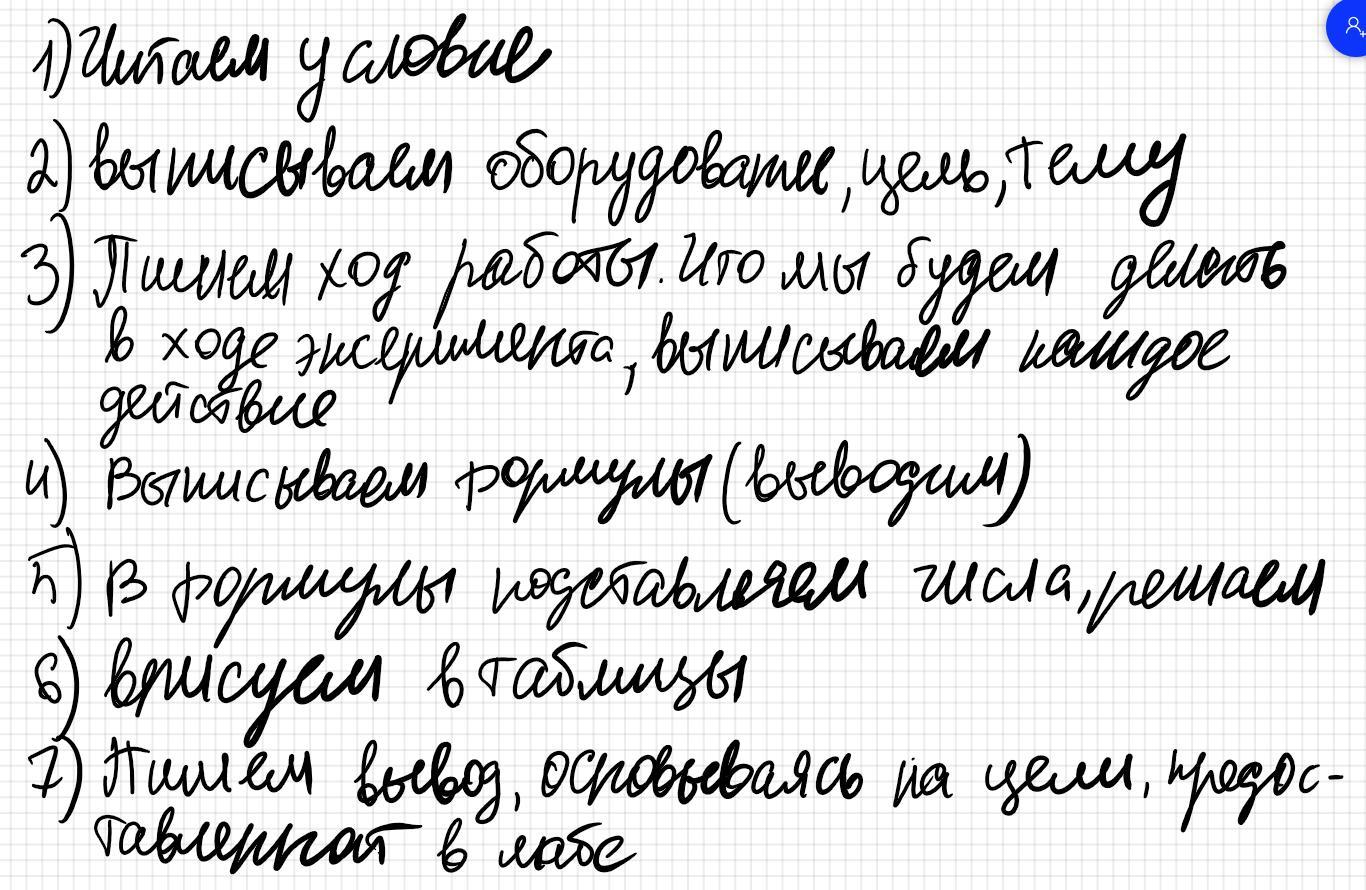 1) Читаем условие
2) выписываем оборудование, цель, тему
3) Пишем ход работы. Что мы будем делать
в ходе эксперимента, выписываем каждое
действие
4) Выписываем формулы (выводим)
5) В формулы подставляем числа, решаем
6) врисуем в таблицы
7) Пишем вывод, основываясь на цели, предос-
тавленной в лабе